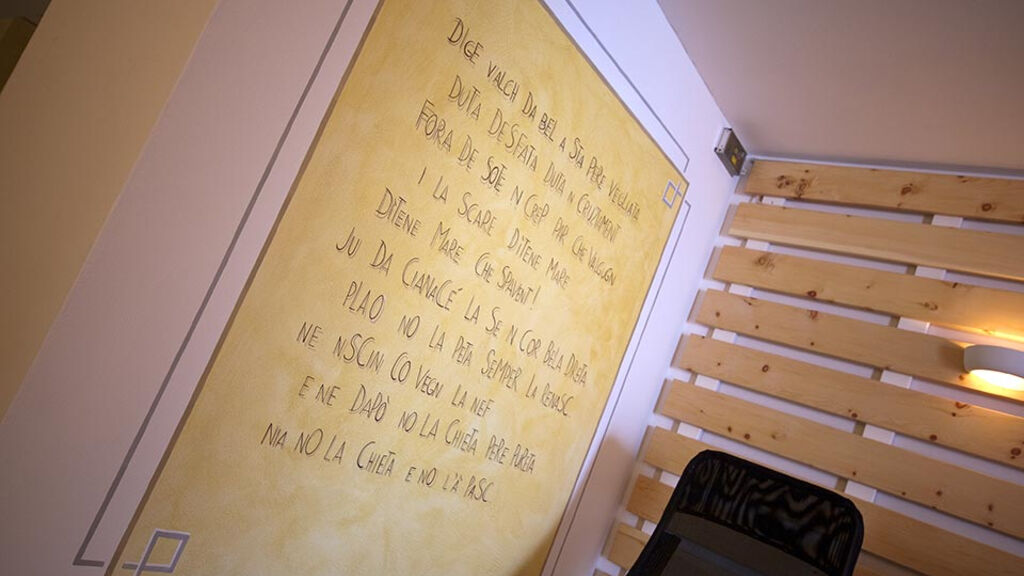 DIGE VALCH DA BEL A STA PERE VEGLIATA
DUTA DESFATA DUTA N CRUZIAMENT
FORA DE SOE N CREP PAR CHE VALGUGN
I LA SCARE DITENE MARE
DITENE MARE CHE SPAVENT!
JU DA CIANACÉ LA SE N COR BELA DRETA
PLAO NO LA PETA SEMPER LA RENASC
NE NSCIN CO VEGN LA NEF
E NE DAPÒ NO LA CHIETA PERE PURETA
NIA NO LA CHIETA E NO LA PASC